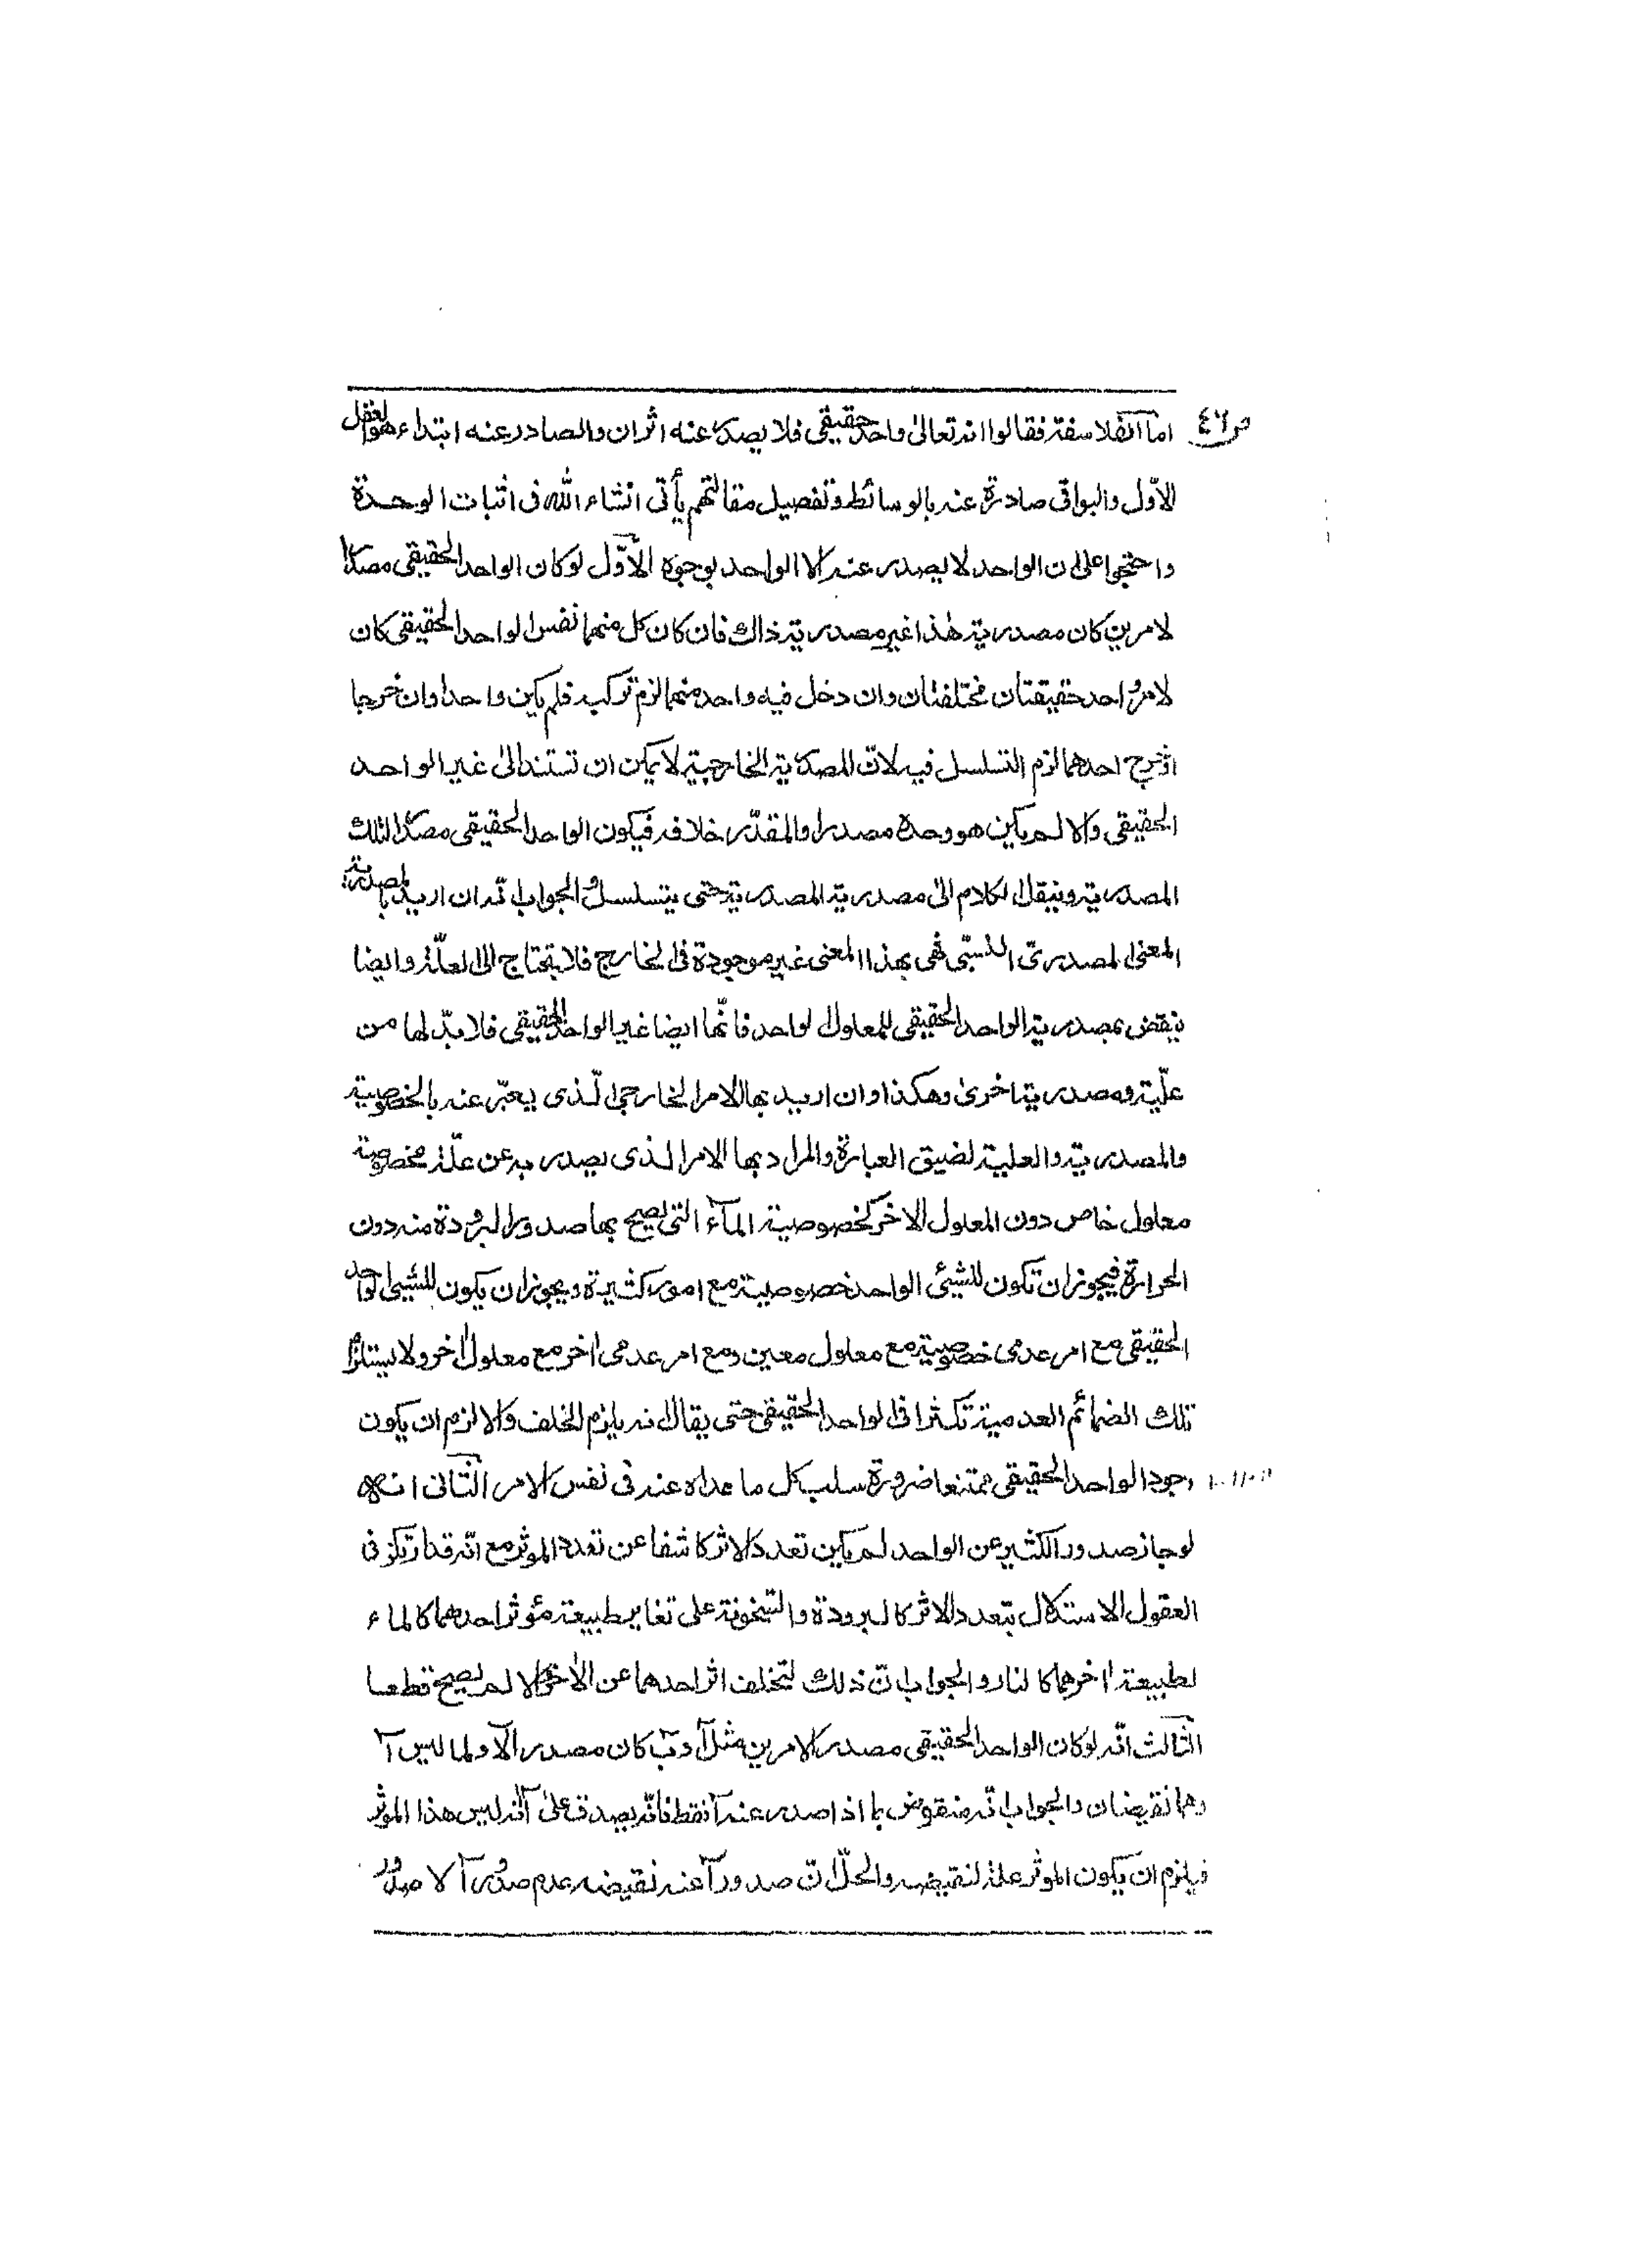 ص٤٦
اما الفلاسفة فقالوا انه تعالىٰ واحد حقيقي فلا يصدر عنه اثران والصادر عنه ابتداء هو العقل
الاوّل والبواقى صادرة عنه بالوسائط وتفصيل مقالتهم يأتى انشاء الله فى اثبات الوحدة
واحتجوا على ان الواحد لا يصدر عنه الا الواحد بوجوه الأوّل لو كان الواحد الحقيقى مصدرا
لامرين كان مصدرية هٰذا غير مصدرية ذاك فان كان كل منهما نفس الواحد الحقيقى كان
لامر واحد حقيقتان مختلفتان وان دخل فيه واحد منهما لزم تركبه فلم يكن واحدا وان خرجا
او خرج احدهما لزم التسلسل فيه لانّ المصدرية الخارجية لا يمكن ان تستند الىٰ غير الواحد
الحقيقى والا لم يكن هو وحده مصدرا والمقدّر خلافه فيكون الواحد الحقيقى مصدرا لتلك
المصدرية وينقل الكلام الىٰ مصدرية المصدرية حتى يتسلسل والجواب انّه ان اريد بالمصدرية
المعنى المصدرىّ النسبّى فهى بهذا المعنى غير موجودة فى الخارج فلا تحتاج الى العلّة وايضا
ينقض بمصدرية الواحد الحقيقى للمعلول الواحد فانّها ايضا غير الواحد الحقيقى فلا بدّ لها من
علّية ومصدرية اخرىٰ وهكذا وان اريد بها الامر الخارجى الّذى يعبّر عنه بالخصوصية
والمصدرية والعلية لضيق العبارة والمراد بها الامر الذى يصدر به عن علّة مخصوصة
معلول خاص دون المعلول الاخر كخصوصية المآء التى يصح بها صدور البرودة منه دون
الحرارة فيجوز ان تكون للشيئ الواحد خصوصية مع امور كثيرة ويجوز ان يكون للشيئ الواحد
الحقيقى مع امر عدمى خصوصية مع معلول معين ومع امر عدمى اٰخر مع معلول اٰخر ولا يستلزم
تلك الضمائم العدمية تكثرا فى الواحد الحقيقى حتى يقال انه يلزم الخلف والا لزم ان يكون
وجود الواحد الحقيقى ممتنعا ضرورة سلب كل ما عداه عنه فى نفس الامر الثّانى انه
لو جاز صدور الكثير عن الواحد لم يكن تعدد الاثر كاشفا عن تعدد المؤثر مع انّه قد ارتكز فى
العقول الاستدلال بتعدد الاثر كالبرودة والسّخونة على تغاير طبيعة مؤثر احدهما كالماء
لطبيعة اٰخرهما كالنار والجواب انّ ذلك لتخلف اثر احدهما عن الاٰخر والا لم يصح قطعا
الثّالث انّه لو كان الواحد الحقيقى مصدر الامرين مثل آ وبٓ كان مصدر الآ ولما ليس آ
وهما نقيضان والجواب انّه منقوض بما اذا صدر عنه آ فقط فانّه يصدق علىٰ آ انّه ليس هذا المؤثر
فيلزم ان يكون المؤثر علة لنقيضه والحلّ انّ صدور آ عنه نقيضه عدم صدور آ لا صدور